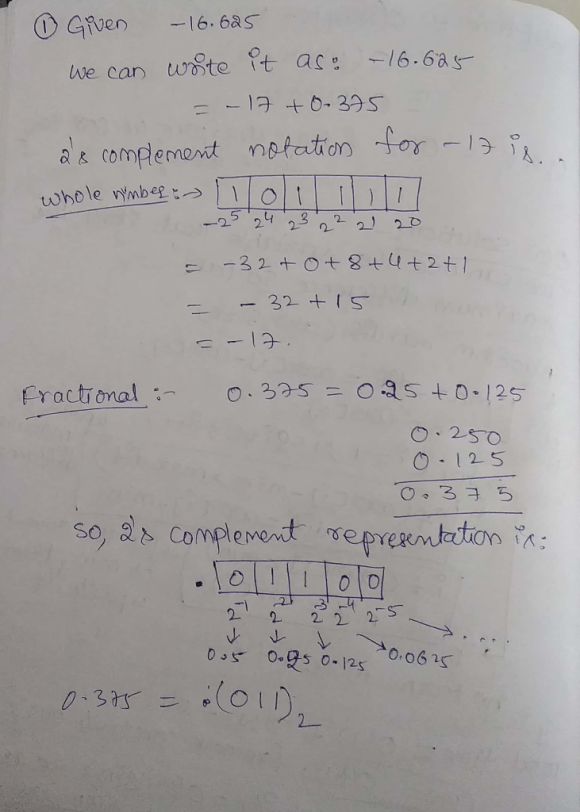 ① Given -16.625
we can write it as: -16.625
= -17 + 0.375
2's complement notation for -17 is..
whole number:→ 1 0 1 1 1 1
-2^5 2^4 2^3 2^2 2^1 2^0
= -32+0+8+4+2+1
= -32+15
= -17.
Fractional :- 0.375 = 0.25 + 0.125
0.250
0.125
0.375
so, 2's complement representation is:
. 0 1 1 0 0
2^-1 2^-2 2^-3 2^-4 2^-5 → ....
↓ ↓ ↓ ↘
0.5 0.25 0.125 0.0625
0.375 = .(011)₂